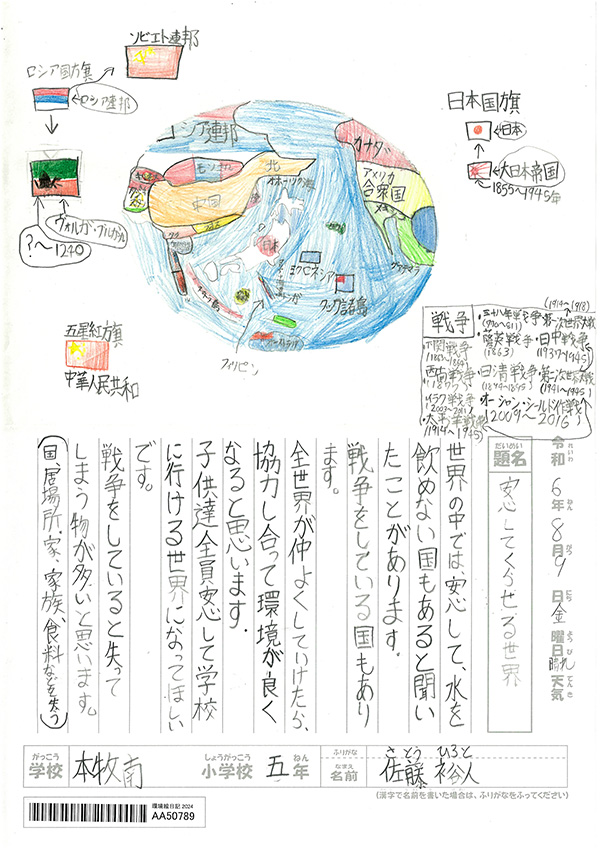 ソビエト連邦
ロシア国方旗
ロシア連邦
ヴォルガ・ブルガル
?〜1240
五星紅方旗
中華人民共和
日本国旗
日本
大日本帝国
1855〜1945年
ロシア連邦
カナダ
アメリカ
合衆国
中国
北
日本
グアテマラ
クック諸島
フィリピン
戦争
三十八年戦争
(770〜811)
第一次世界大戦
(1914→1918)
薩英戦争
(1863)
日中戦争
(1937〜1945)
下関戦争
西南戦争
(1877)
日清戦争
(1894〜1895)
(1941〜1945)
イラク戦争
オーシャン・シールド作戦
2009〜2016
(1914〜1945)
令和 6年 8月 9日 金曜日 天気 晴れ
れいわ ねん がつ にち ようび てんき
だいめい
題名
安心してくらせる世界
世界の中では、安心して、水を
飲めない国もあると聞い
たことがあります。
戦争をしている国もあり
ます。
全世界が仲よくしていけたら、
協力し合って環境が良く
なると思います.
子供達全員、安心して学校
に行ける世界になってほしい
です。
戦争をしていると失って
しまう物が多いと思います。
(国、居場所、家、家族、食料などを失う)
がっこう
学校
本牧南
しょうがっこう
小学校
五
ねん
年
ふりがな
さとう ひろと
なまえ
名前
佐藤 裕人
(漢字で名前を書いた場合は、ふりがなをふってください)
環境絵日記 2024
AA50789